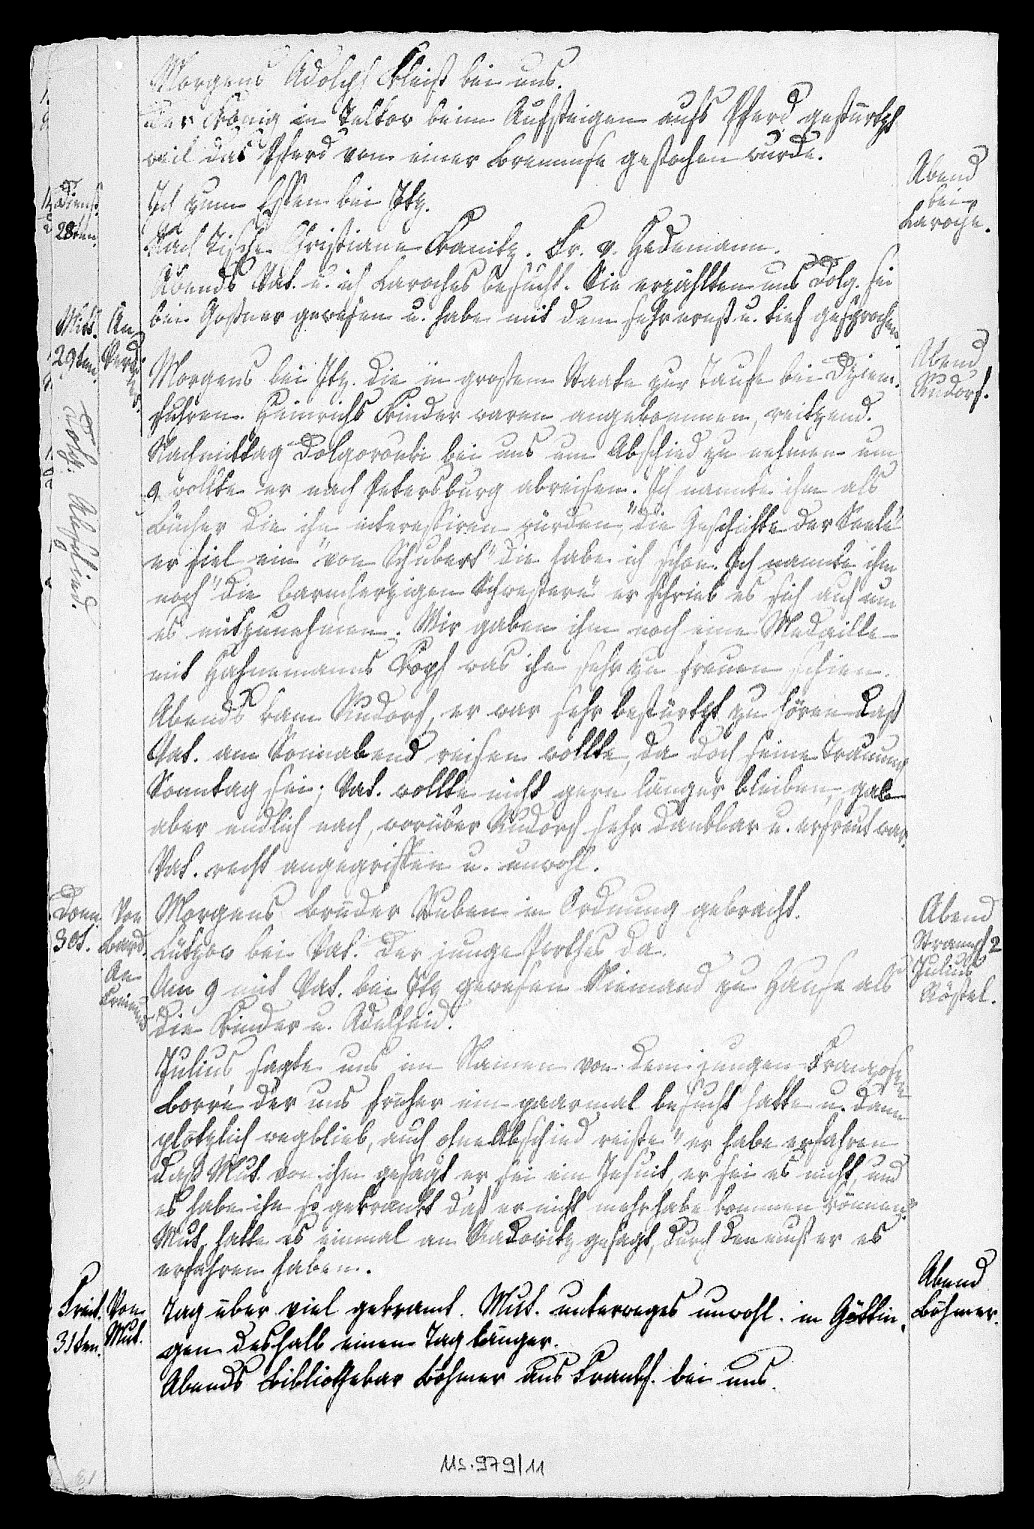 Morgens Adolph Kleist bei uns.
Der König in Teltow beim Aufsteigen aufs Pferd gestürtzt
weil das Pferd von einer Bremse gestochen wurde.
Dienst.
28ten.
Ich zum Essen bei Itz.
Abend
bei
Laroche.
Nach Tische Christiane Kanitz. Fr. v. Hedemann.
Abends Vat. u. ich Laroches besucht. Sie erzählten uns Dolg. sei
bei Goßner gewesen u. habe mit dem sehr ernst u. tief gesprochen.
Mitt.
29ten.
An
Morgens bei Itz. die in großem Staate zur Taufe bei
Abend
Rudorf.
fuhren. Heinrichs Kinder waren angekommen, reitzend.
Dolg. Abschied.
Nachmittag Dolgorouki bei uns um Abschied zu nehmen um
9 wollte er nach Petersburg abreisen. Ich nannte ihm als
Bücher die ihn interessiren würden "die Geschichte der Seele"
er fiel ein "von Schubert" die habe ich schon. Ich nannte ihm
noch "die barmherzigen Schwestern" er schrieb es sich auf um
es mitzunehmen. Wir gaben ihm noch eine Medaille
mit Hahnemanns Kopf was ihn sehr zu freuen schien.
Abends kam Rudorf, er war sehr bestürtzt zu hören daß
Vat. am Sonnabend reisen wollte, da doch seine Trauung
Sonntag sei; Vat. wollte nicht gern länger bleiben, gab
aber endlich nach, worüber Rudorf sehr dankbar u. erfreut war.
Vat. recht angegriffen u. unwohl.
Donn.
30t.
Von
Bard.
An
Morgens Bruder Stuben in Ordnung gebracht.
Abend
Strauß 2
Julius
Röstel.
Lützow bei Vat. Der junge Perthes da.
Um 9 mit Vat. bei Itz gewesen Niemand zu Hause als
die Kinder u. Adelheid.
Julius sagte uns im Namen von dem jungen Franzosen
Borré der uns früher ein paarmal besucht hatte u. dann
plötzlich wegblieb, auch ohne Abschied reiste "er habe erfahren
daß Mut. von ihm gesagt er sei ein Jesuit, er sei es nicht, und
es habe ihn so gekränkt daß er nicht mehr habe kommen können"
Mut. hatte es einmal an Radowitz gesagt, durch den muß er es
erfahren haben.
Freit.
31ten.
Von
Mut.
Tag über viel gekramt. Mut. unterweges unwohl. in Göttin-
Abend
Böhmer.
gen deshalb einen Tag länger.
Abends Bibliothekar Böhmer aus Frankf. bei uns.
Ms. 979/11